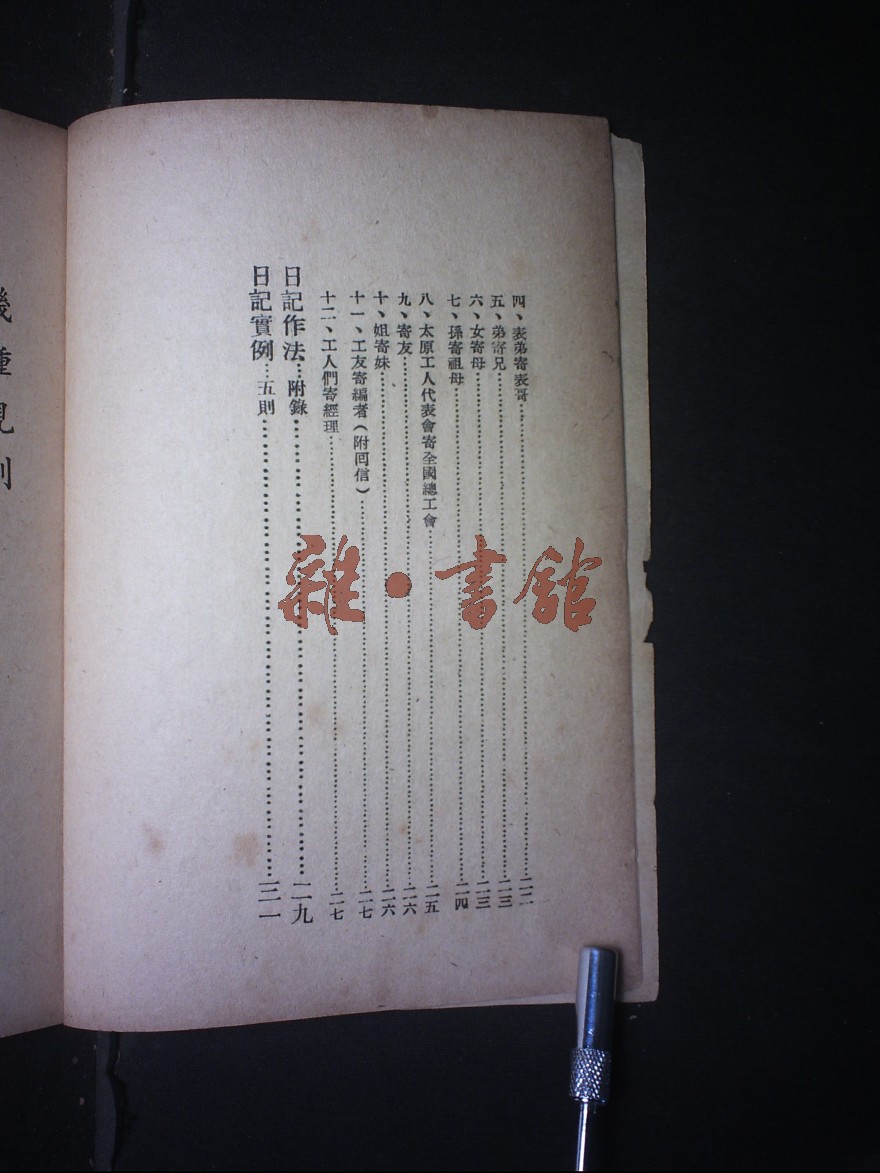 四、表弟寄表哥……二二
五、弟寄兄……二三
六、女寄母……二三
七、孫寄祖母……二四
八、太原工人代表會寄全國總工會……二五
九、寄友……二六
十、姐寄妹……二六
十一、工友寄編者(附囘信)……二七
十二、工人們寄經理……二七
日記作法…附錄……二九
日記實例…五則……三一
雜·書館